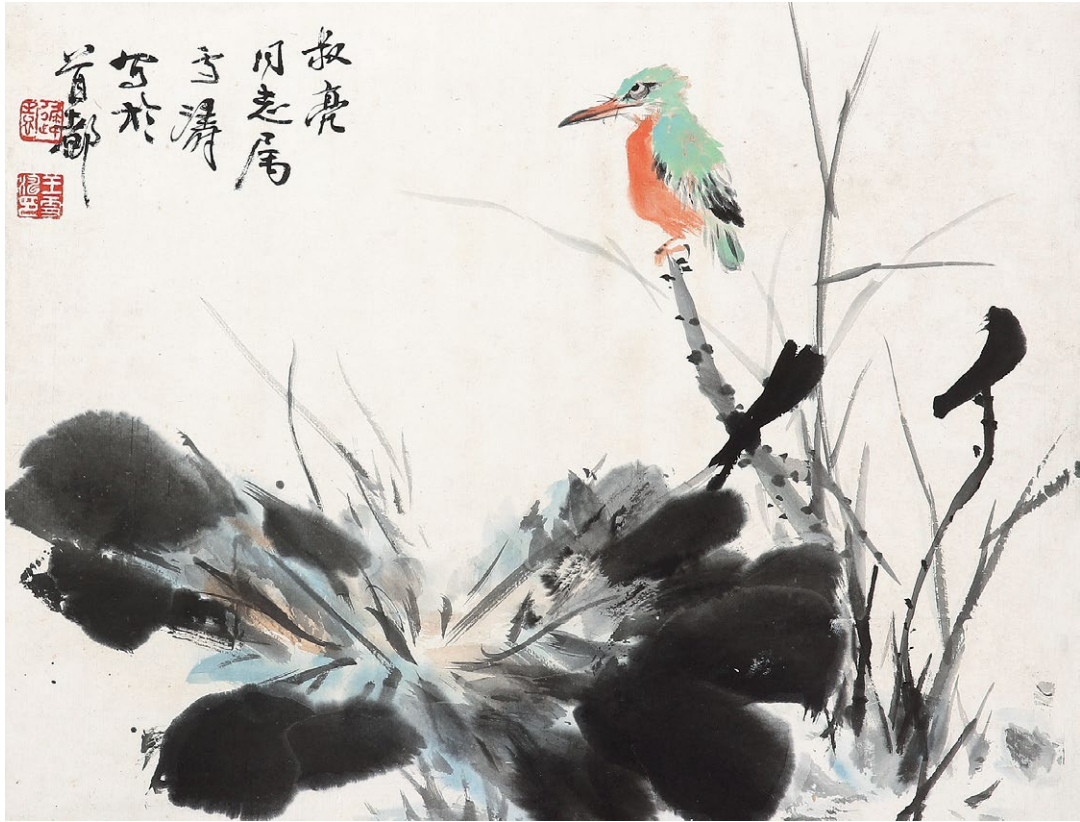 叔亮
同志属
雪濤
写於
首都
王雪濤印